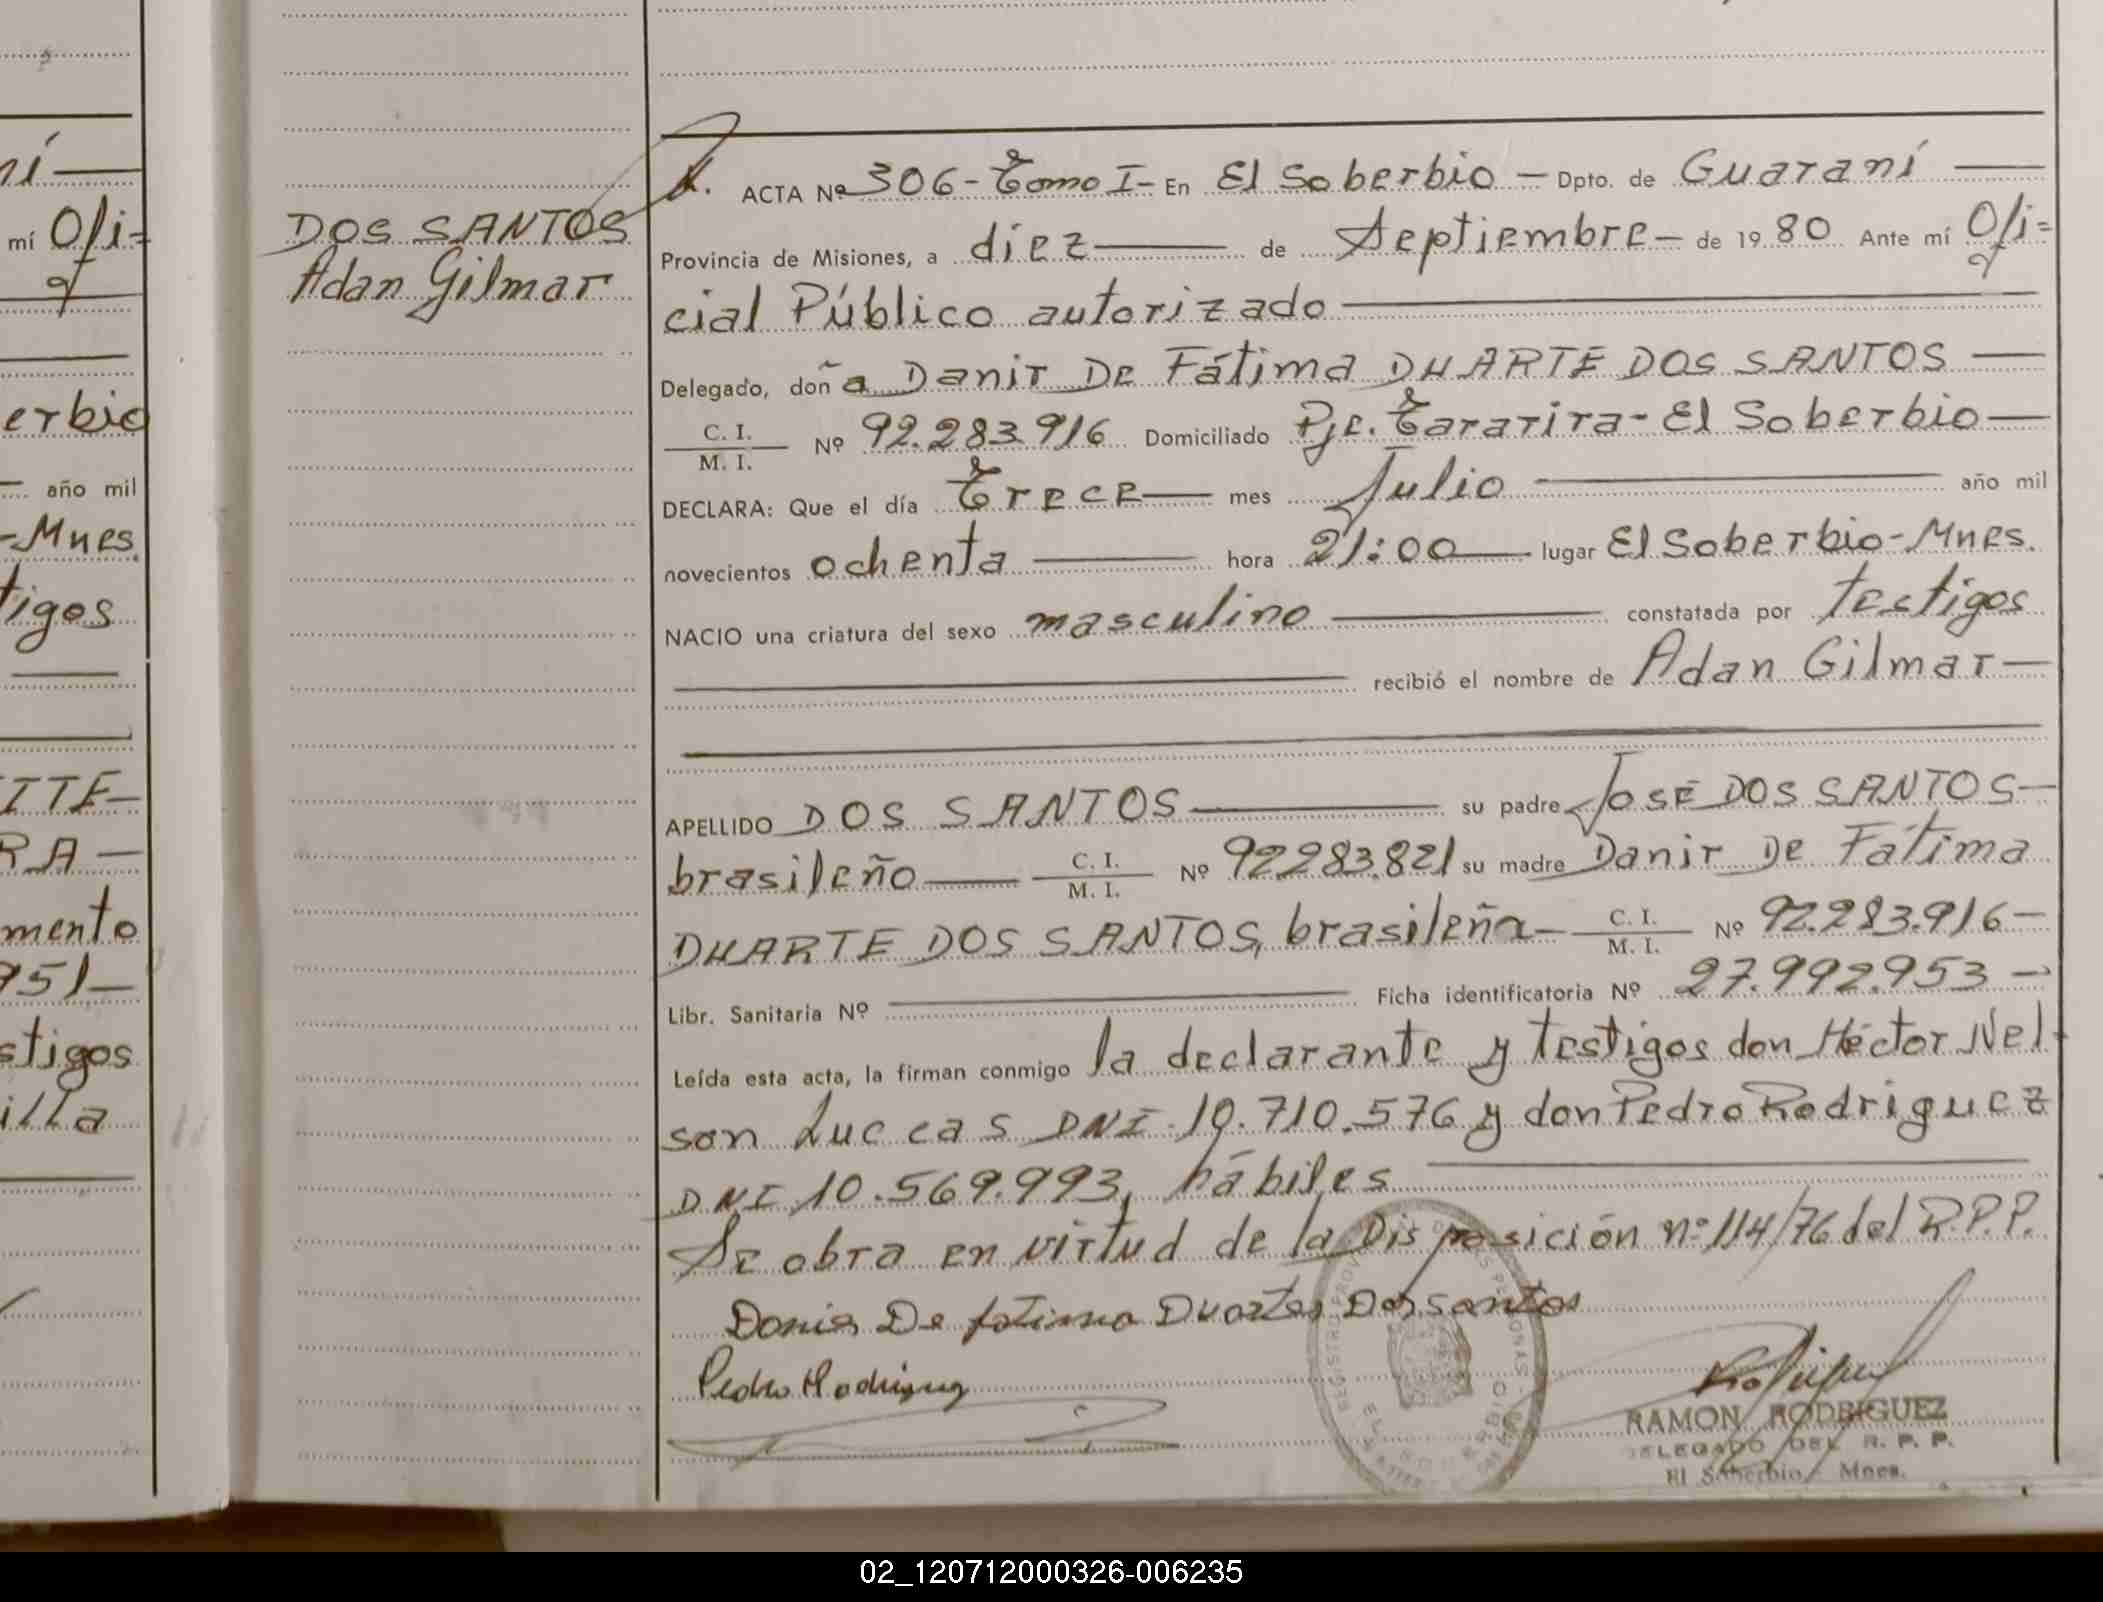 ní
mí Ofi-
erbio
año mil
-Mnes.
tigos
ITTE-
RA-
mento
951-
stigos
illa
DOS SANTOS
Adan Gilmar
ACTA Nº 306-Tomo I- En El Soberbio - Dpto. de Guaraní
Provincia de Misiones, a diez de Septiembre - de 1980 Ante mí Ofi=
cial Público autorizado
Delegado, doña Danir De Fátima DUARTE DOS SANTOS
C. I.
M. I. Nº 92.283.916 Domiciliado Pje. Tararira - El Soberbio
DECLARA: Que el día Trece mes Julio año mil
novecientos ochenta hora 21:00 lugar El Soberbio-Mnes.
NACIO una criatura del sexo masculino constatada por testigos
recibió el nombre de Adan Gilmar
APELLIDO DOS SANTOS su padre JOSE DOS SANTOS
brasileño C. I. M. I. Nº 92283.821 su madre Danir De Fátima
DUARTE DOS SANTOS, brasileña C. I. M. I. Nº 92.283.916
Libr. Sanitaria Nº Ficha identificatoria Nº 27.992.953
Leída esta acta, la firman conmigo la declarante y testigos don Héctor Nel-
son Luccas DNI 10.710.576 y don Pedro Rodriguez
DNI 10.569.993, hábiles
Se obra en virtud de la Disposición nº 114/76 del R.P.P.
Danir De fatima Duartes Dos santos
Pedro Rodriguez
EL SOBERBIO
RAMON RODRIGUEZ
DELEGADO DEL R. P. P.
El Soberbio - Mnes.
02_120712000326-006235